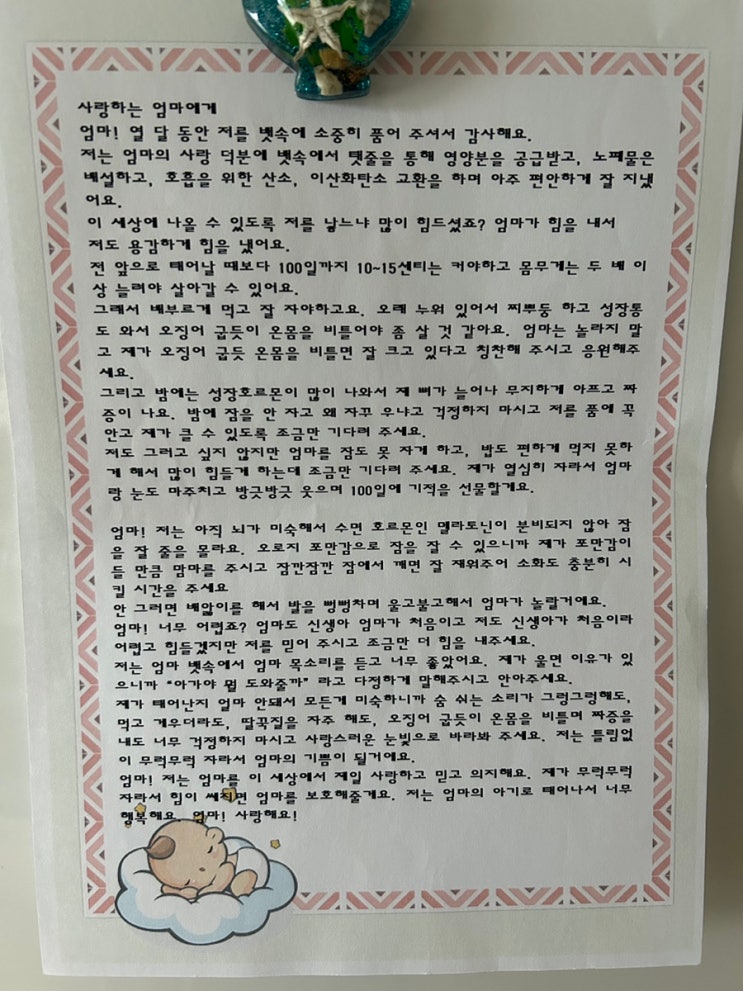 사랑하는 엄마에게
엄마! 열 달 동안 저를 뱃속에 소중히 품어 주셔서 감사해요.
저는 엄마의 사랑 덕분에 뱃속에서 탯줄을 통해 영양분을 공급받고, 노폐물은
배설하고, 호흡을 위한 산소, 이산화탄소 교환을 하며 아주 편안하게 잘 지냈
어요.
이 세상에 나올 수 있도록 저를 낳느냐 많이 힘드셨죠? 엄마가 힘을 내서
저도 용감하게 힘을 냈어요.
전 앞으로 태어날 때보다 100일까지 10~15센티는 커야하고 몸무게는 두 배 이
상 늘려야 살아갈 수 있어요.
그래서 배부르게 먹고 잘 자야하고요. 오래 누워 있어서 찌뿌둥 하고 성장통
도 와서 오징어 굽듯이 온몸을 비틀어야 좀 살 것 같아요. 엄마는 놀라지 말
고 제가 오징어 굽듯 온몸을 비틀면 잘 크고 있다고 칭찬해 주시고 응원해주
세요.
그리고 밤에는 성장호르몬이 많이 나와서 제 뼈가 늘어나 무지하게 아프고 짜
증이 나요. 밤에 잠을 안 자고 왜 자꾸 우냐고 걱정하지 마시고 저를 품에 꼭
안고 제가 클 수 있도록 조금만 기다려 주세요.
저도 그러고 싶지 않지만 엄마를 잠도 못 자게 하고, 밥도 편하게 먹지 못하
게 해서 많이 힘들게 하는데 조금만 기다려 주세요. 제가 열심히 자라서 엄마
랑 눈도 마주치고 방긋방긋 웃으며 100일에 기적을 선물할게요.
엄마! 저는 아직 뇌가 미숙해서 수면 호르몬인 멜라토닌이 분비되지 않아 잠
을 잘 줄을 몰라요. 오로지 포만감으로 잠을 잘 수 있으니까 제가 포만감이
들 만큼 맘마를 주시고 잠깐잠깐 잠에서 깨면 잘 재워주어 소화도 충분히 시
킬 시간을 주세요
안 그러면 배앓이를 해서 발을 뻥뻥차며 울고불고해서 엄마가 놀랄거에요.
엄마! 너무 어렵죠? 엄마도 신생아 엄마가 처음이고 저도 신생아가 처음이라
어렵고 힘들겠지만 저를 믿어 주시고 조금만 더 힘을 내주세요.
저는 엄마 뱃속에서 엄마 목소리를 듣고 너무 좋았어요. 제가 울면 이유가 있
으니까 "아가야 뭘 도와줄까" 라고 다정하게 말해주시고 안아주세요.
제가 태어난지 얼마 안돼서 모든게 미숙하니까 숨 쉬는 소리가 그렁그렁해도,
먹고 게우더라도, 딸꾹질을 자주 해도, 오징어 굽듯이 온몸을 비틀며 짜증을
내도 너무 걱정하지 마시고 사랑스러운 눈빛으로 바라봐 주세요. 저는 틀림없
이 무럭무럭 자라서 엄마의 기쁨이 될거에요.
엄마! 저는 엄마를 이 세상에서 제일 사랑하고 믿고 의지해요. 제가 무럭무럭
자라서 힘이 쎄지면 엄마를 보호해줄게요. 저는 엄마의 아기로 태어나서 너무
행복해요. 엄마! 사랑해요!